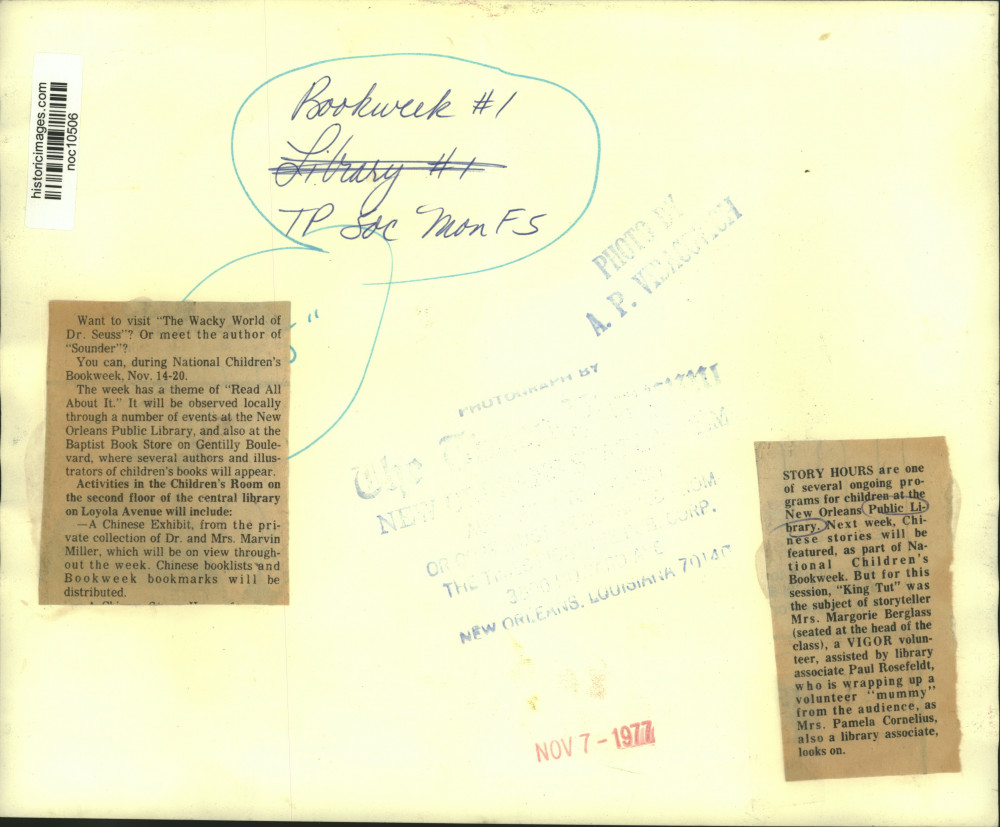 historicimages.com
noc10506
Bookweek #1
Library #1
TP Soc Mon FS
PHOTO BY
A. P. VIDACOVICH
Want to visit "The Wacky World of
Dr. Seuss"? Or meet the author of
"Sounder"?
You can, during National Children's
Bookweek, Nov. 14-20.
The week has a theme of "Read All
About It." It will be observed locally
through a number of events at the New
Orleans Public Library, and also at the
Baptist Book Store on Gentilly Boule-
vard, where several authors and illus-
trators of children's books will appear.
Activities in the Children's Room on
the second floor of the central library
on Loyola Avenue will include:
—A Chinese Exhibit, from the pri-
vate collection of Dr. and Mrs. Marvin
Miller, which will be on view through-
out the week. Chinese booklists and
Bookweek bookmarks will be
distributed.
PHOTOGRAPH BY
The
NEW
CORP.
THE
NEW ORLEANS, LOUISIANA 70140
NOV 7 - 1977
STORY HOURS are one
of several ongoing pro-
grams for children at the
New Orleans Public Li-
brary. Next week, Chi-
nese stories will be
featured, as part of Na-
tional Children's
Bookweek. But for this
session, "King Tut" was
the subject of storyteller
Mrs. Margorie Berglass
(seated at the head of the
class), a VIGOR volun-
teer, assisted by library
associate Paul Rosefeldt,
who is wrapping up a
volunteer "mummy"
from the audience, as
Mrs. Pamela Cornelius,
also a library associate,
looks on.